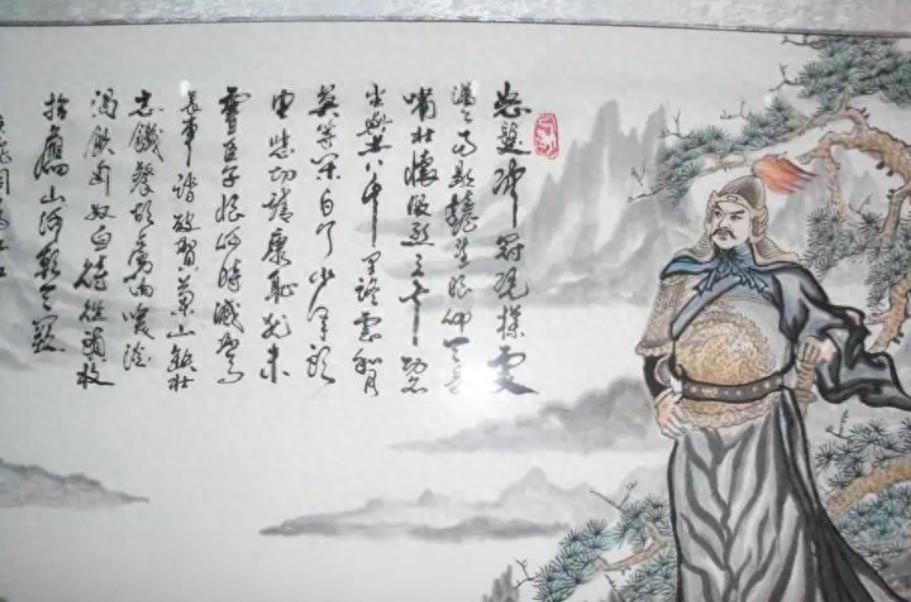 怒髮冲冠凭欄處
瀟〻雨歇抬望眼仰天長
嘯壯懷激烈三十功名
尘與土八千里路雲和月
莫等闲白了少年頭
空悲切靖康恥猶未
雪臣子恨何時滅駕
長車踏破賀蘭山缺壯
志饑餐胡虜肉笑談
渴飲匈奴血待從頭收
拾舊山河朝天闕
岳飛詞滿江红